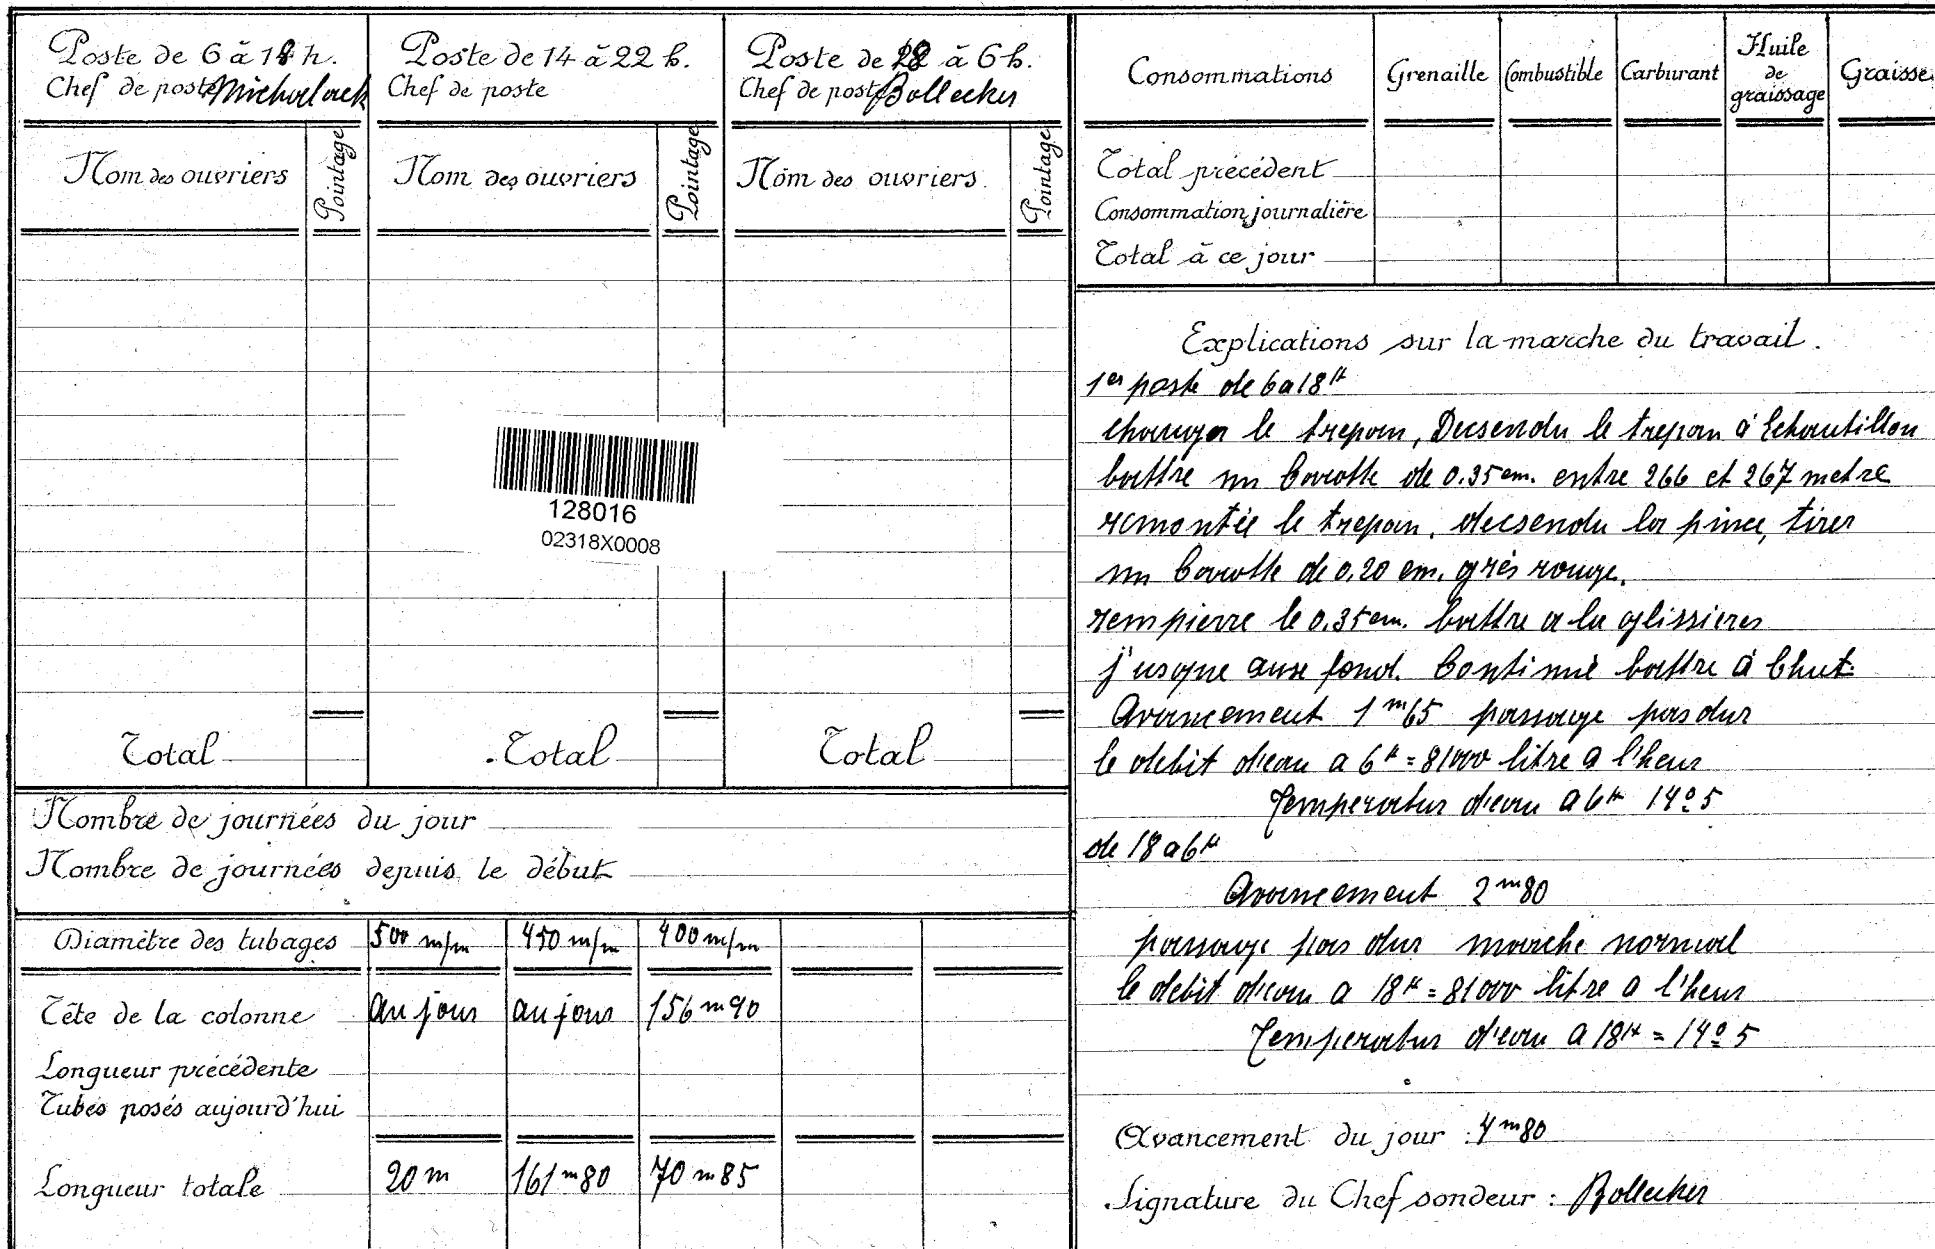 Poste de 6 à 18 h.
Chef de poste
Poste de 14 à 22 h.
Chef de poste
Poste de 18 à 6 h.
Chef de poste Bollecker
Nom des ouvriers
Pointage
Nom des ouvriers
Pointage
Nom des ouvriers
Pointage
128016
02318X0008
Total
Total
Total
Nombre de journées du jour
Nombre de journées depuis le début
Diamètre des tubages 500 m/m 450 m/m 400 m/m
Tête de la colonne au jour au jour 156 m 90
Longueur précédente
Tubes posés aujourd'hui
Longueur totale 20 m 161 m 80 70 m 85
Consommations Grenaille Combustible Carburant Huile de graissage Graisse
Total précédent
Consommation journalière
Total à ce jour
Explications sur la marche du travail.
1er poste de 6 a 18 H
changer le trepan, Decsendu le trepan á Echantillon
battre un Carotte de 0.35 em. entre 266 et 267 metre
remontée le trepan. decsendu la pince, tirer
un Carotte de 0.20 em. grès rouge.
rempierre le 0.35 em. battre a la glissieres
j'usque aux fond. Continué battre á Chut.
Avancement 1 m 65 passage pas dur
le debit d'eau a 6 H = 81000 litre a l'heur
Temperatur d'eau a 6 H 14° 5
de 18 a 6 H
Avancement 2 m 80
passage pas dur marche normal
le debit d'eau a 18 H = 81000 litre a l'heur
Temperatur d'eau a 18 H = 14° 5
Avancement du jour : 4 m 80
Signature du Chef sondeur : Bollecker